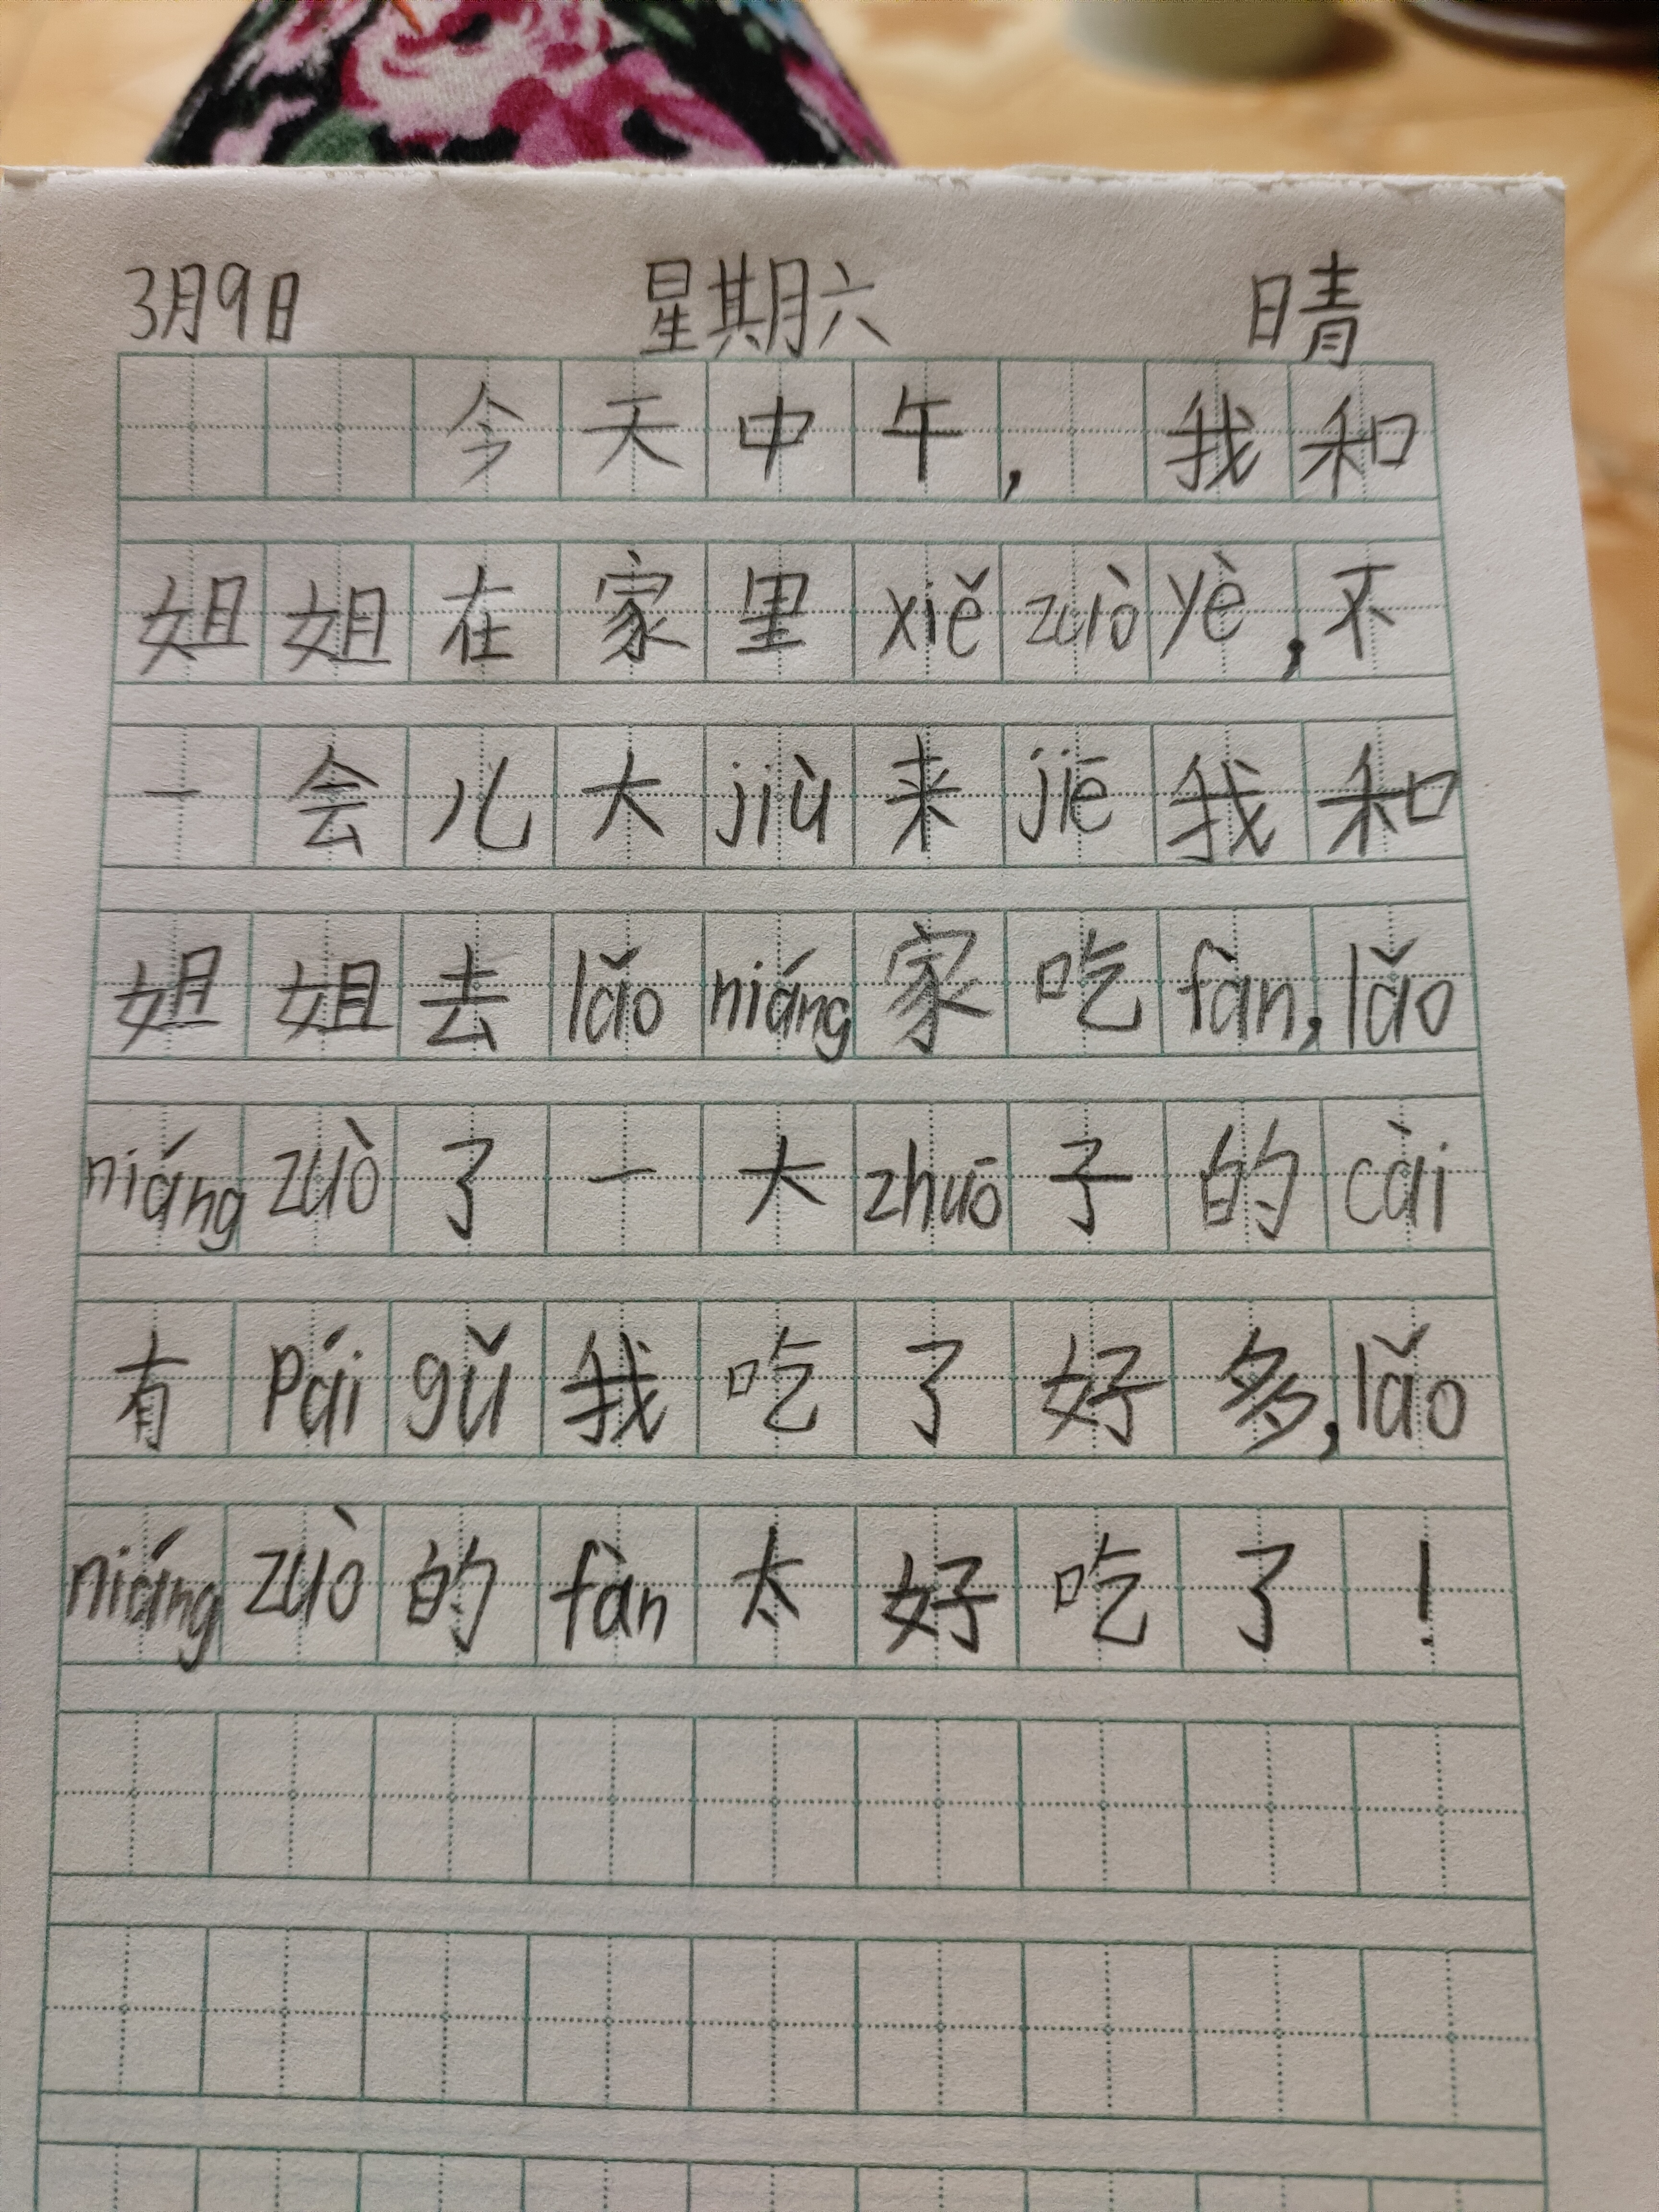 3月9日 星期六 晴
今天中午，我和
姐姐在家里xiě zuò yè，不
一会儿大jiù来jiē我和
姐姐去lǎo niáng家吃fàn，lǎo
niáng zuò了一大zhuō子的cài
有pái gǔ我吃了好多，lǎo
niáng zuò的fàn太好吃了！